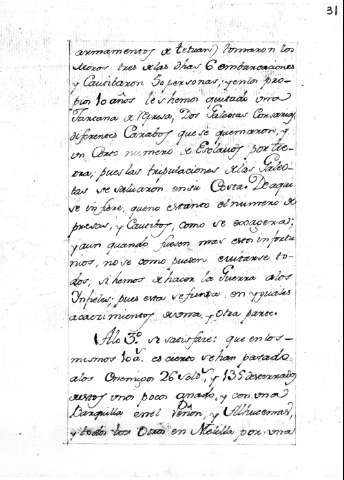 31
armamentos de tetuan) tomaron los
Moros tres de las dhas 6 embarcaciones
y Cautibaron 50 personas, y en los pro-
pios 10 años les hemos quitado una
Tartana de Presa, Dos Galeotas Corsarias,
diferentes Carabos que se quemaron, y
un Corto numero de Esclavos por tie-
rra, pues las tripulaciones de las Galeo-
tas se salvaron en su Costa. De aqui
se infiere, que no es tanto el numero de
presas, y Cautibos, como se exagera;
y aun quando fuesen mas estos infortu-
nios, no se como pueden evitarse to-
dos, si hemos de hacer la Guerra a los
Infieles; pues esta se funda en yguales
acaecimientos de una, y otra parte.
Al 3º se satisface: que en los
mismos 10 aˢ. es cierto se han pasado
a los Enemigos 26 Soldˢ, y 135 desterrados
estos unos poco a nado, y con una
Barquilla en el Peñon, y Alhucemas,
y todos los Otros en Melilla por una